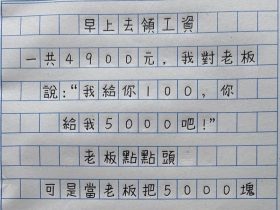 早上去領工資
一共4900元，我對老板
說：“我給你100，你
給我5000吧！”
老板點點頭
可是當老板把5000塊